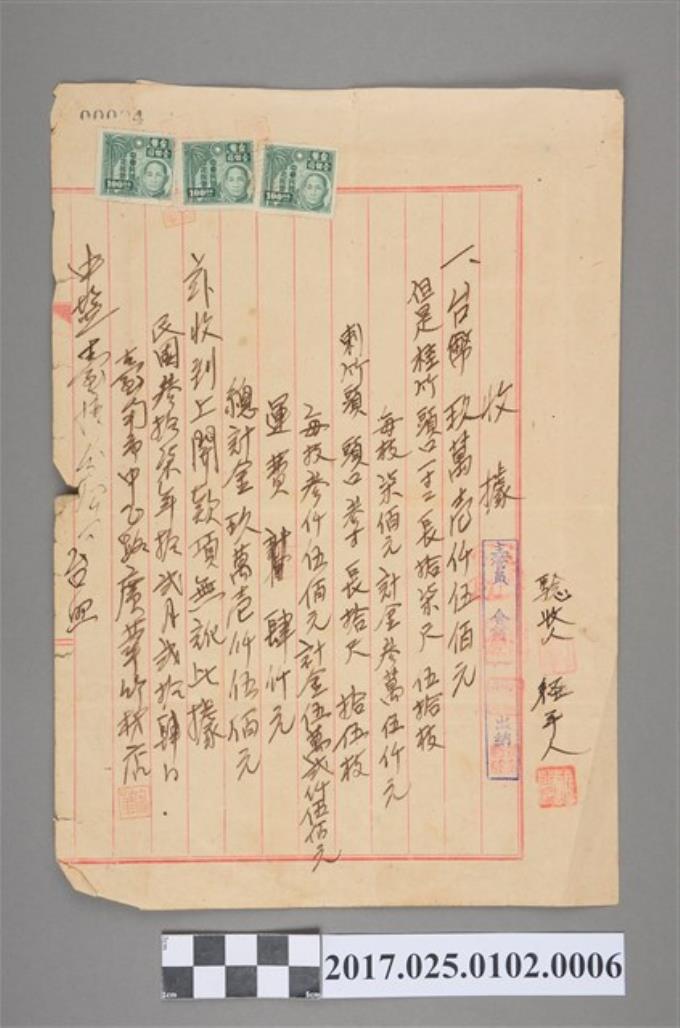 收據
一、台幣玖萬壹仟伍佰元
但是桂竹頭口二寸長拾柒尺伍拾枝
每枝柒佰元計金叁萬伍仟元
刺竹頭頭口叁寸長拾尺拾伍枝
每枝叁仟伍佰元計金伍萬貳仟伍佰元
運費計肆仟元
總計金玖萬壹仟伍佰元
計收到上開款項無訛此據
民國叁拾柒年拾貳月貳拾肆日
臺南市中正路廣華竹材店
台照
驗收人
經手人
出納
100
100
100
2017.025.0102.0006